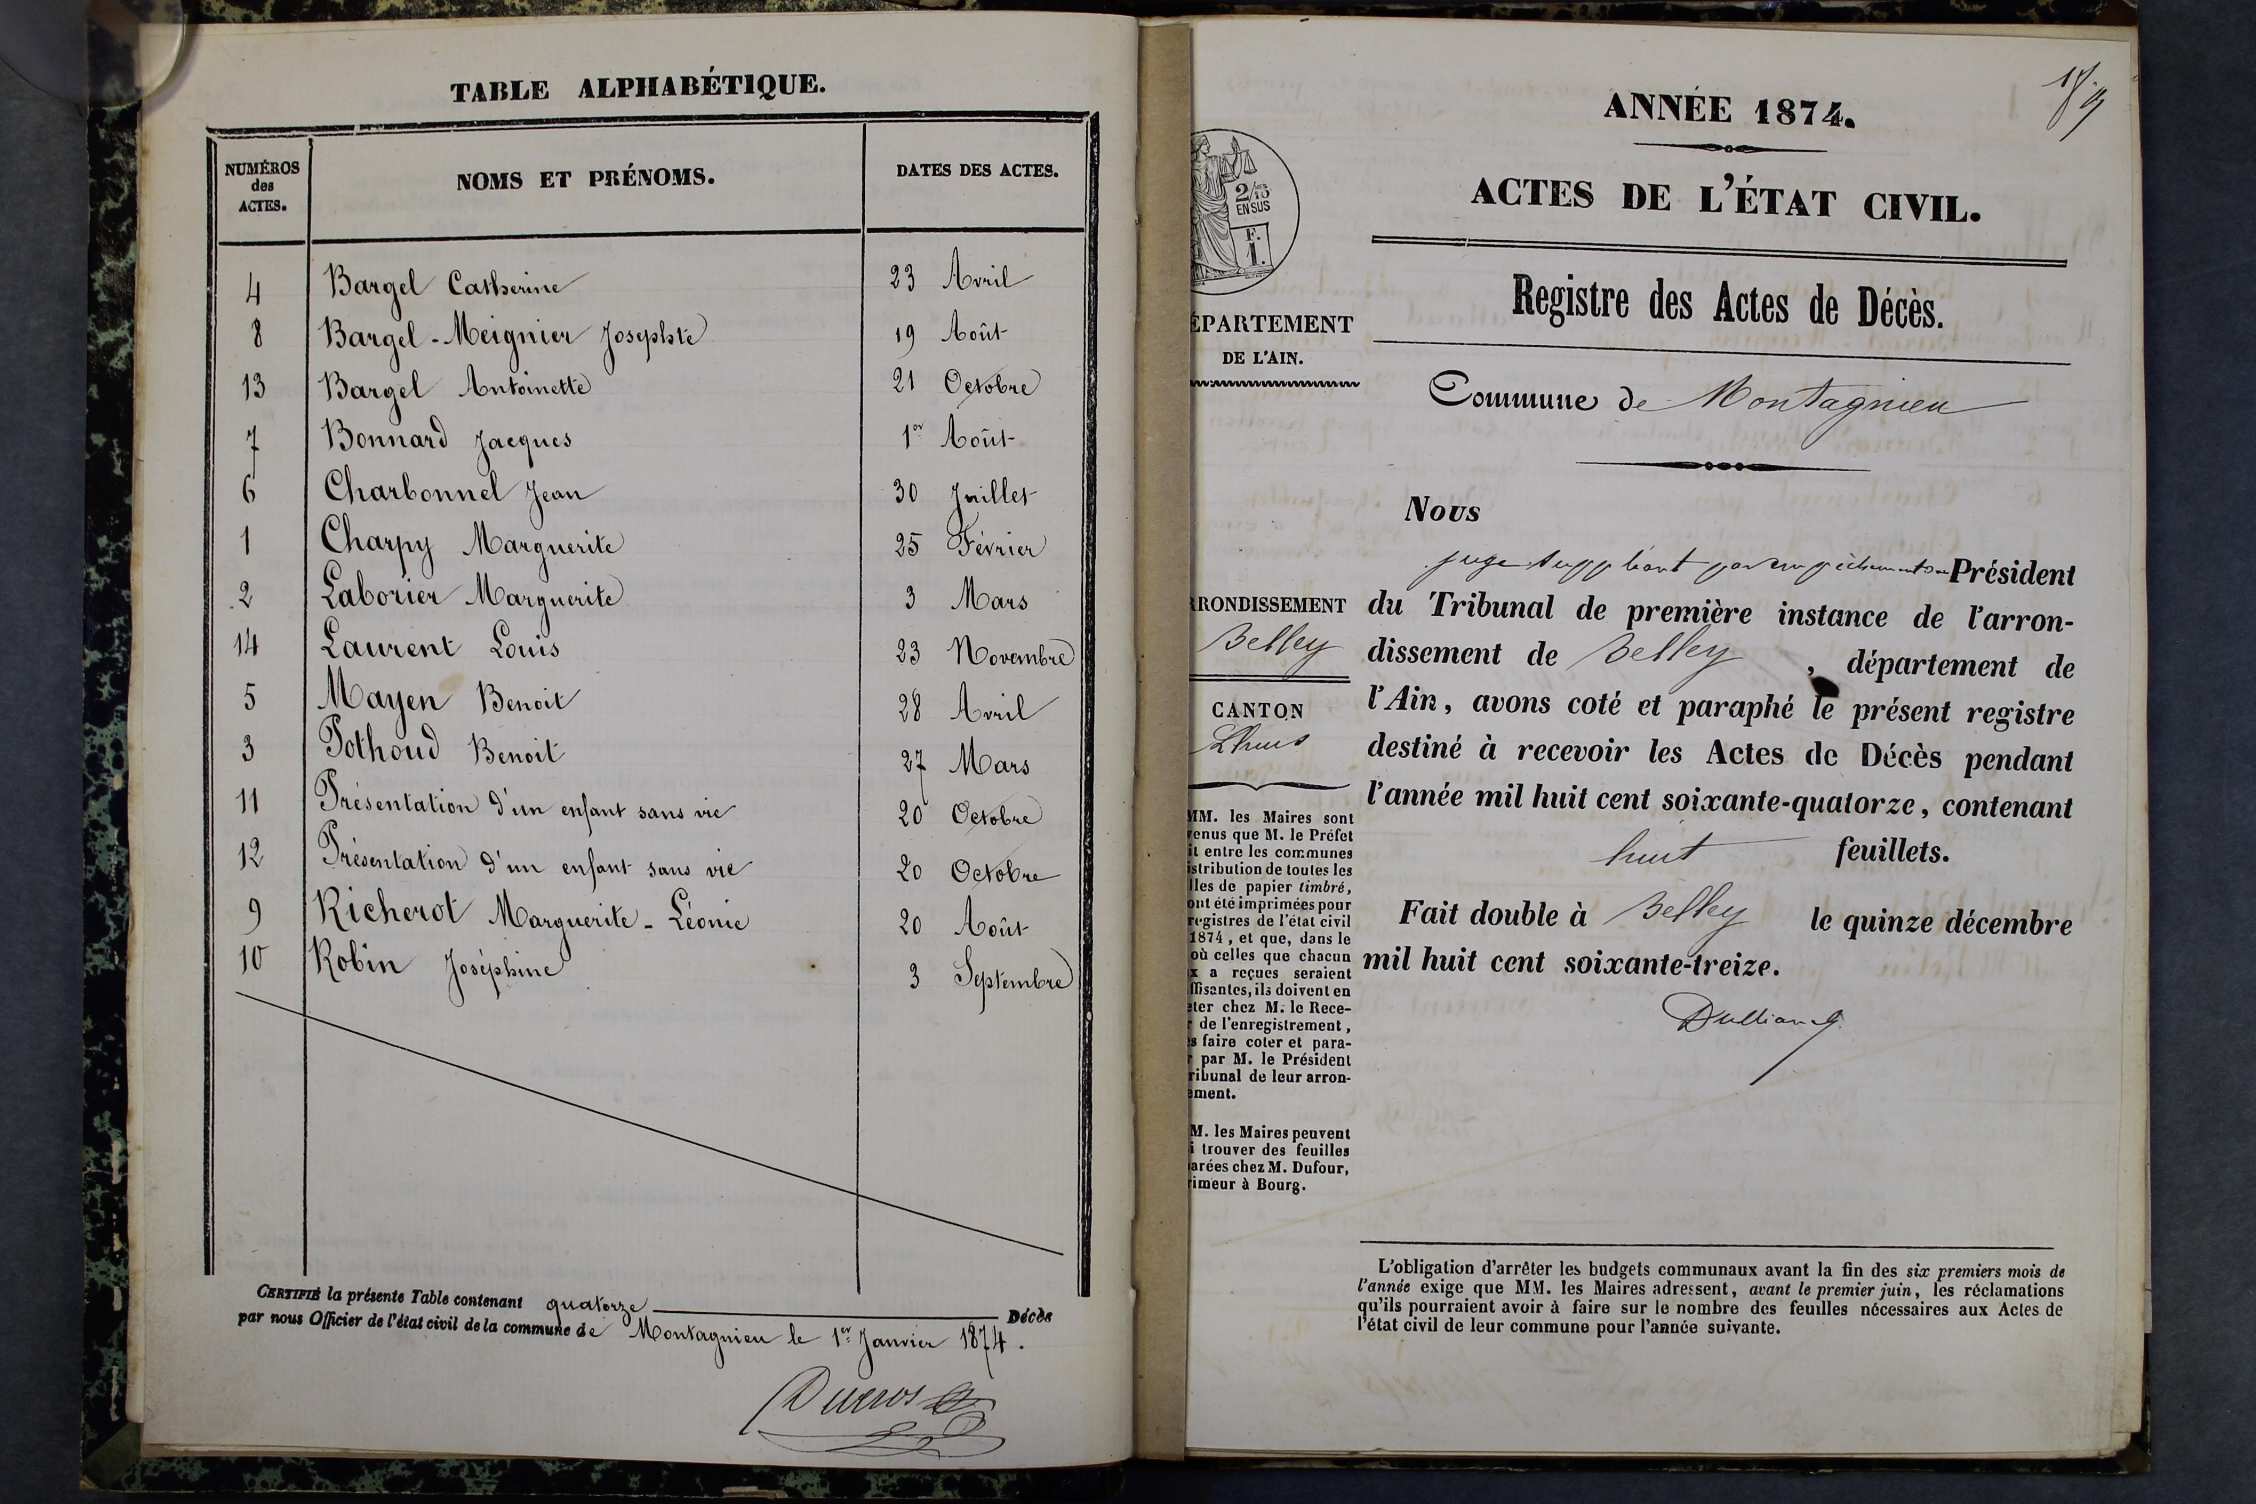 TABLE ALPHABÉTIQUE.
NUMÉROS des ACTES. NOMS ET PRÉNOMS. DATES DES ACTES.
4 Bargel Catherine 23 Avril
8 Bargel-Meignier Josephte 19 Août
13 Bargel Antoinette 21 Octobre
7 Bonnard Jacques 1er Août
6 Charbonnel Jean 30 Juillet
1 Charpy Marguerite 25 Février
2 Laborier Marguerite 3 Mars
14 Laurent Louis 23 Novembre
5 Mayen Benoit 28 Avril
3 Pothoud Benoit 27 Mars
11 Présentation d'un enfant sans vie 20 Octobre
12 Présentation d'un enfant sans vie 20 Octobre
9 Richerot Marguerite-Léonie 20 Août
10 Robin Joséphine 3 Septembre
CERTIFIÉ la présente Table contenant quatorze Décès
par nous Officier de l'état civil de la commune de Montagnieu le 1er Janvier 1874.
Ducros
ANNÉE 1874.
ACTES DE L'ÉTAT CIVIL.
2/10es
EN SUS
F.
1.
ÉPARTEMENT
DE L'AIN.
RRONDISSEMENT
Belley
CANTON
Lhuis
MM. les Maires sont
venus que M. le Préfet
it entre les communes
istribution de toutes les
lles de papier timbré,
ont été imprimées pour
registres de l'état civil
1874, et que, dans le
où celles que chacun
x a reçues seraient
ffisantes, ils doivent en
eter chez M. le Rece-
r de l'enregistrement,
s faire coter et para-
r par M. le Président
ribunal de leur arron-
ement.
M. les Maires peuvent
i trouver des feuilles
arées chez M. Dufour,
rimeur à Bourg.
Registre des Actes de Décès.
Commune de Montagnieu
Nous
juge suppléant par empêchement du Président
du Tribunal de première instance de l'arron-
dissement de Belley, département de
l'Ain, avons coté et paraphé le présent registre
destiné à recevoir les Actes de Décès pendant
l'année mil huit cent soixante-quatorze, contenant
huit feuillets.
Fait double à Belley le quinze décembre
mil huit cent soixante-treize.
L'obligation d'arrêter les budgets communaux avant la fin des six premiers mois de
l'année exige que MM. les Maires adressent, avant le premier juin, les réclamations
qu'ils pourraient avoir à faire sur le nombre des feuilles nécessaires aux Actes de
l'état civil de leur commune pour l'année suivante.